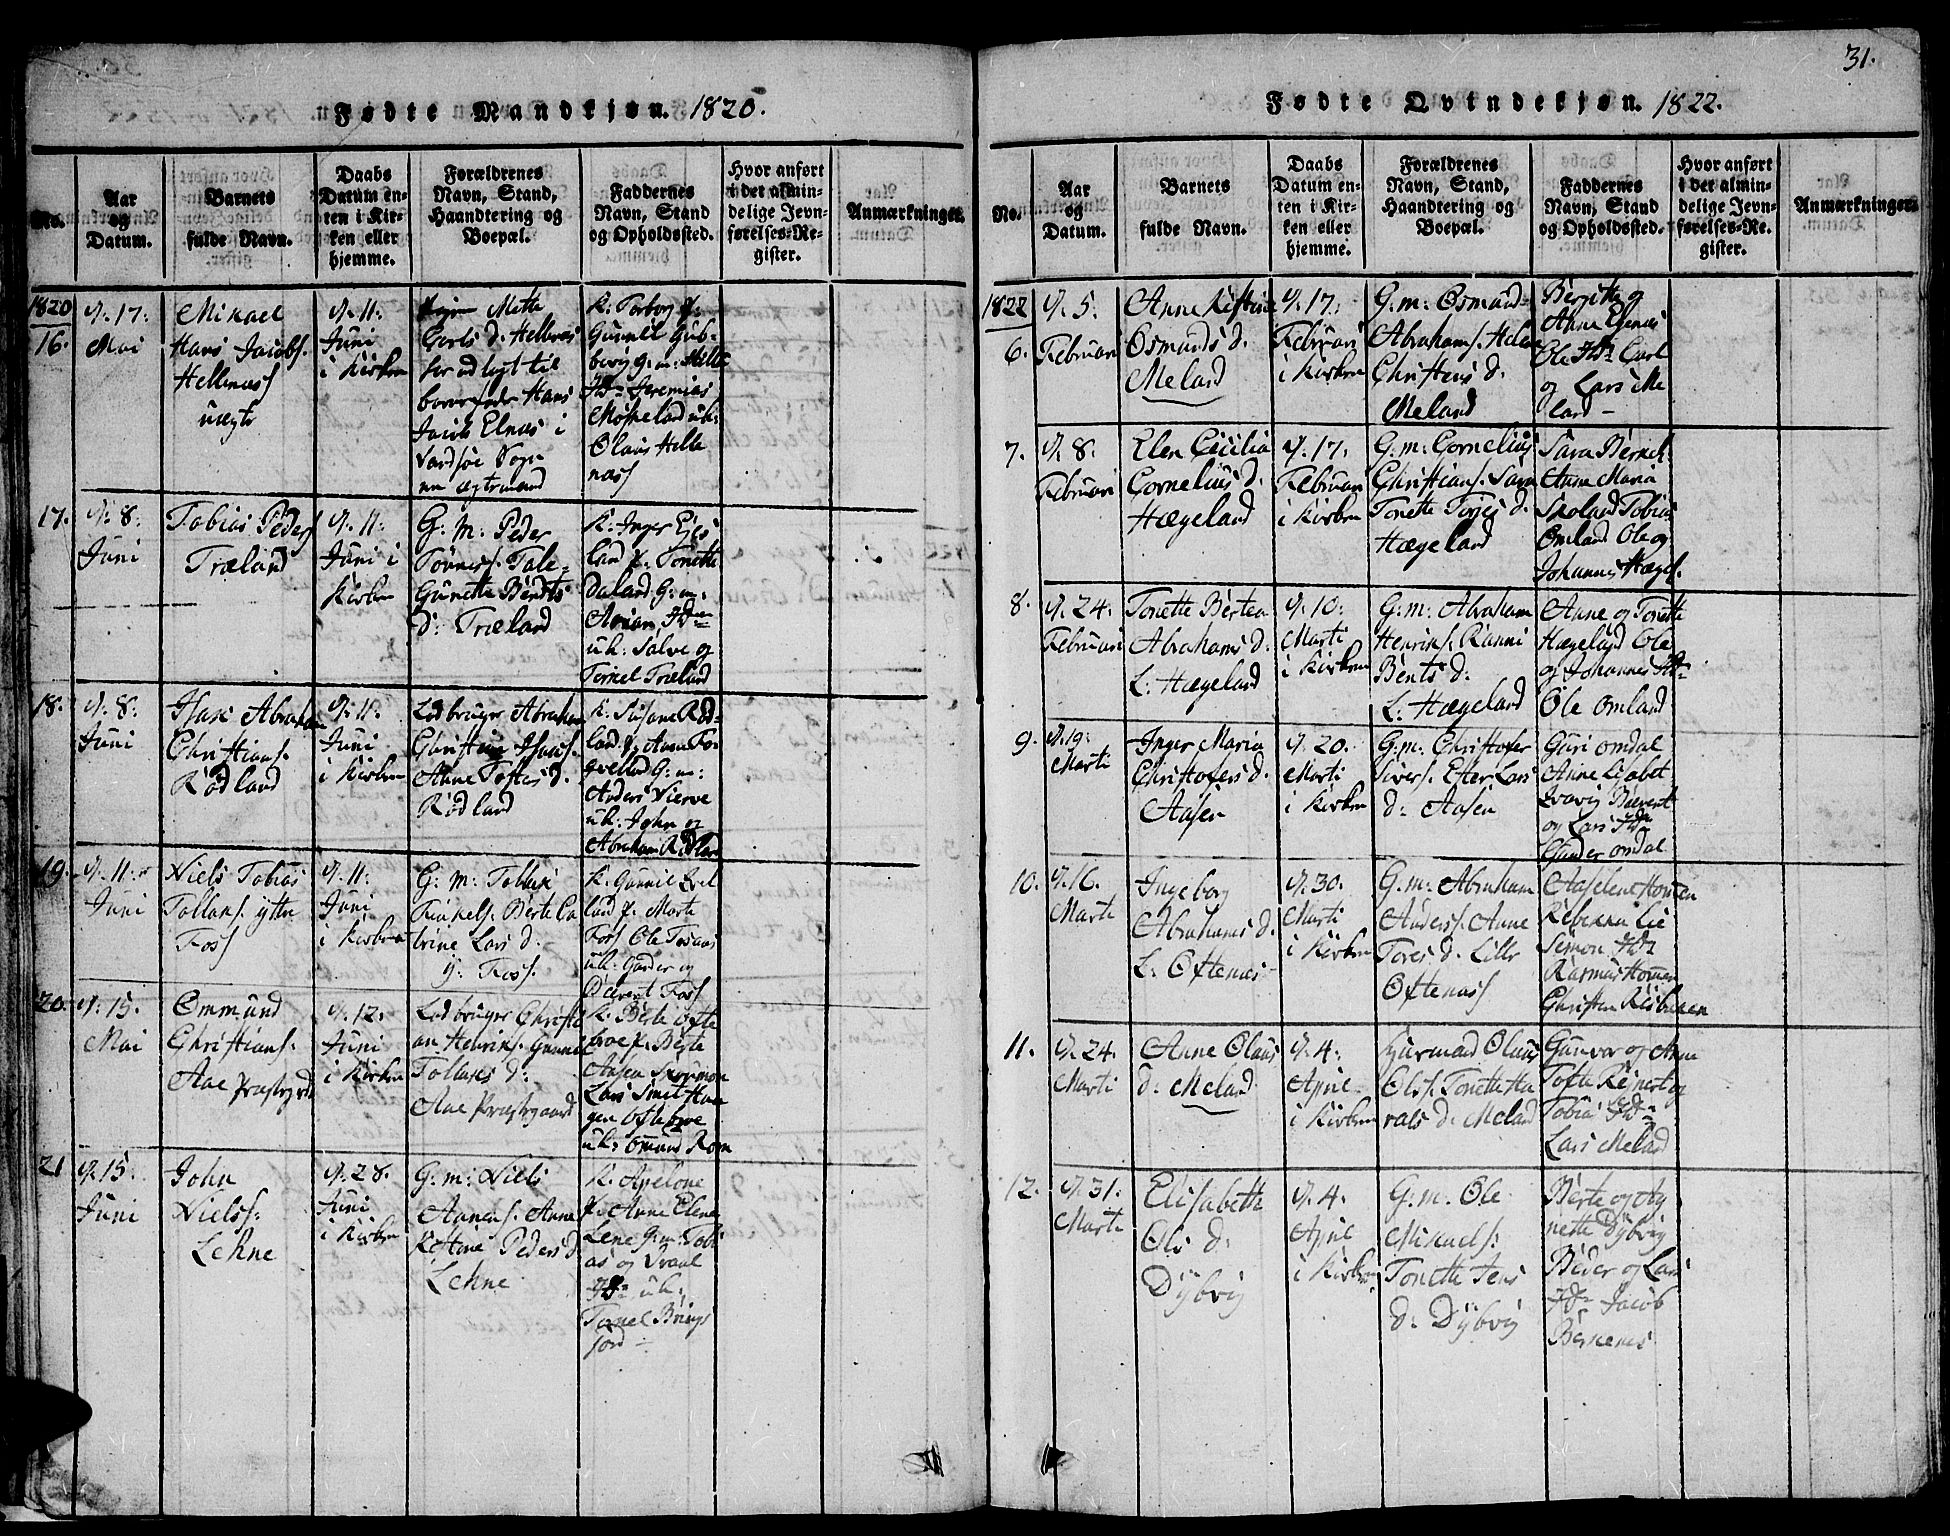 31.
Fødte Mandkjøn. 1820.
No.
Aar
og
Datum.
Barnets
fulde Navn.
Daabs
Datum en-
ten i Kir-
ken eller
hjemme.
Forældrenes
Navn, Stand,
Haandtering og
Boepæl.
Faddernes
Navn, Stand
og Opholdssted.
Hvor anført
i det almin-
delige Jevn-
førelses-Re-
gister.
Anmærkninger.
1820
16.
d. 17:
Mai
Mikael
Hans Jacobs.
Hellenæss
uægte
d. 11:
Juni
i Kirken
Mette
Carls d. Hellenes
har udlagt til
barnefader Hans
Jacob
Sogn
K. Torborg p:
Gunnil Gud-
borg G: m:
Jeremias
Møskeland uk:
Olaus Helle
næss
17.
d. 8:
Juni
Tobias Peders
Træland
d. 11:
Juni i
Kirken
G: m: Peder
Tønness. Tale-
Gunette Bendts
d: Træland
K: Inger Eges
land p: Tonette
Daland G: m:
uk: Salve og
Tørkel Træland
18.
d. 8:
Juni
Isak Abraham
Christians.
Rødland
d. 11:
Juni
i Kirken
Ledbruger Abraham
Christian Isaks.
Anne Tostes d.
Rødland
K. Susane Rød-
land p: Anne
G: m:
Anders Vierve
uk: John og
Abraham Rødland
19.
d. 11:
Juni
Niels Tobias
Tollaks. ytre
Foss
d. 11:
Juni
i Kirken
G: m: Tollak
Tørkels. Berte Ca
trine Lars d.
y: Foss.
K. Gunnil
land p. Marte
Foss Ole
uk: Gunder og
Foss
20.
d. 15.
Mai
Ommund
Christians.
Aae Præstegrd
d. 12.
Juni
i Kirken
Ledbruger Christi
an Henriks. Gunnil
Tollaks d:
Aae Præstegaard
K. Berte Ofte
broe p. Berte
Aasen
Lars Smidstu
gen Oftebroe
uk: Omund Rom
21
d. 15.
Juni
John
Nielss:
Lehne
d. 28.
Juni
i Kirken
G: m: Niels
Aanens. Anne
Kistine Peders d.
Lehne
K. Apelone
p. Anne Elene
Lene G: m: Tobi
as og
uk:
Tørkel Brings
jord –
Fødte Qvindekjøn. 1822.
No.
Aar
og
Datum.
Barnets
fulde Navn.
Daabs
Datum en-
ten i Kir-
ken eller
hjemme.
Forældrenes
Navn, Stand,
Haandtering og
Boepæl.
Faddernes
Navn, Stand
og Opholdssted.
Hvor anført
i det almin-
delige Jevn-
førelses-Re-
gister.
Anmærkninger.
1822
6.
d. 5.
Februari
Anne Kistine
Osmunds d.
Meland
d. 17.
Februari
i Kirken
G: m: Osmund
Abrahams. Helene
Christens d.
Meland
Bergitte og
Anne
Ole Carl
og Lars Me
land –
7.
d. 8.
Februari
Elen Cicilia
Cornelius d.
Hægeland
d. 17.
Februari
i Kirken
G: m: Cornelius
Christians. Sara
Tonette Torjes d.
Hægeland
Sara
Anne Maria
Skoland Tobias
Omland Ole og
Johannes Hægel.
8.
d. 24.
Februari
Tonette Bertea
Abrahams d.
L. Hægeland
d. 10:
Marti
i Kirken
G: m: Abraham
Henriks. Ranni
Bents d.
L. Hægeland
Anne og Tonette
Hægeland Ole
og Johannes
Ole Omland
9.
d. 19.
Marti
Inger Maria
Christofers d.
Aasen
d. 20.
Marti
i Kirken
G: m: Christofer
Sivers. Ester Lars
d: Aasen
Guri Omdal
Anne Lisabet
og Lars
Gunder Omdal
10.
d. 16.
Marti
Ingeborg
Abrahams d.
L. Oftenæs
d. 30.
Marti
i Kirken
G: m: Abraham
Anders. Anne
Tores d. Lille
Oftenæss
Aaselene Homen
Rebekka Lie
Simon
Rasmus Homen
Christen
11.
d. 24.
Marti
Anne Olaus
d. Meland
d. 4.
April
i Kirken
Olaus
Ols. Tonette Ha
rals d. Meland
Gunvor og Anne
Tofte Reinert og
Tobias
Lars Meland
12.
d. 31.
Marti
Elisabeth
Ols d.
Dÿbvig
d. 4.
April
i Kirken
G: m. Ole
Mikaels.
Tonette Jens
d. Dÿbvig
Berte og Ag
nette Dÿbvig
Peder og Lars
Jacob
Bernenes